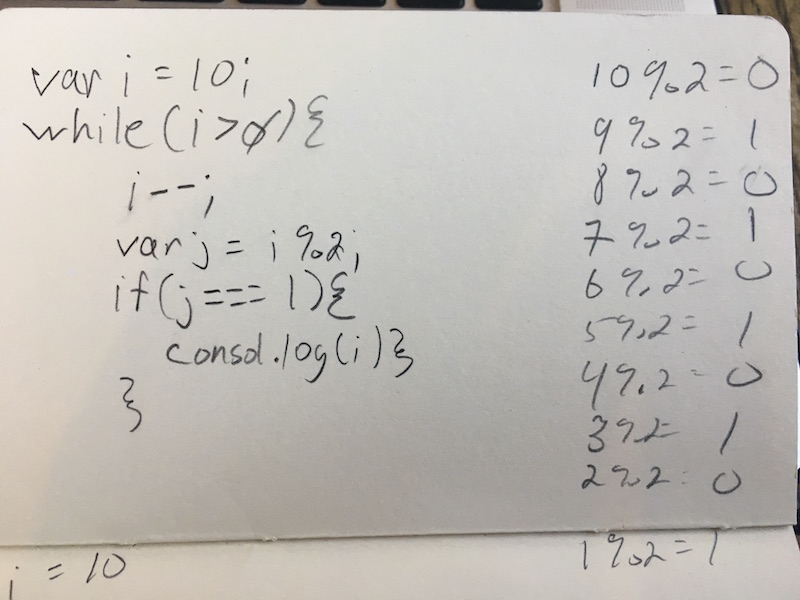 var i = 10;
while(i>0){
i--;
var j = i%2;
if(j===1){
consol.log(i)}
}
i = 10
10%2=0
9%2=1
8%2=0
7%2=1
6%2=0
5%2=1
4%2=0
3%2=1
2%2=0
1%2=1